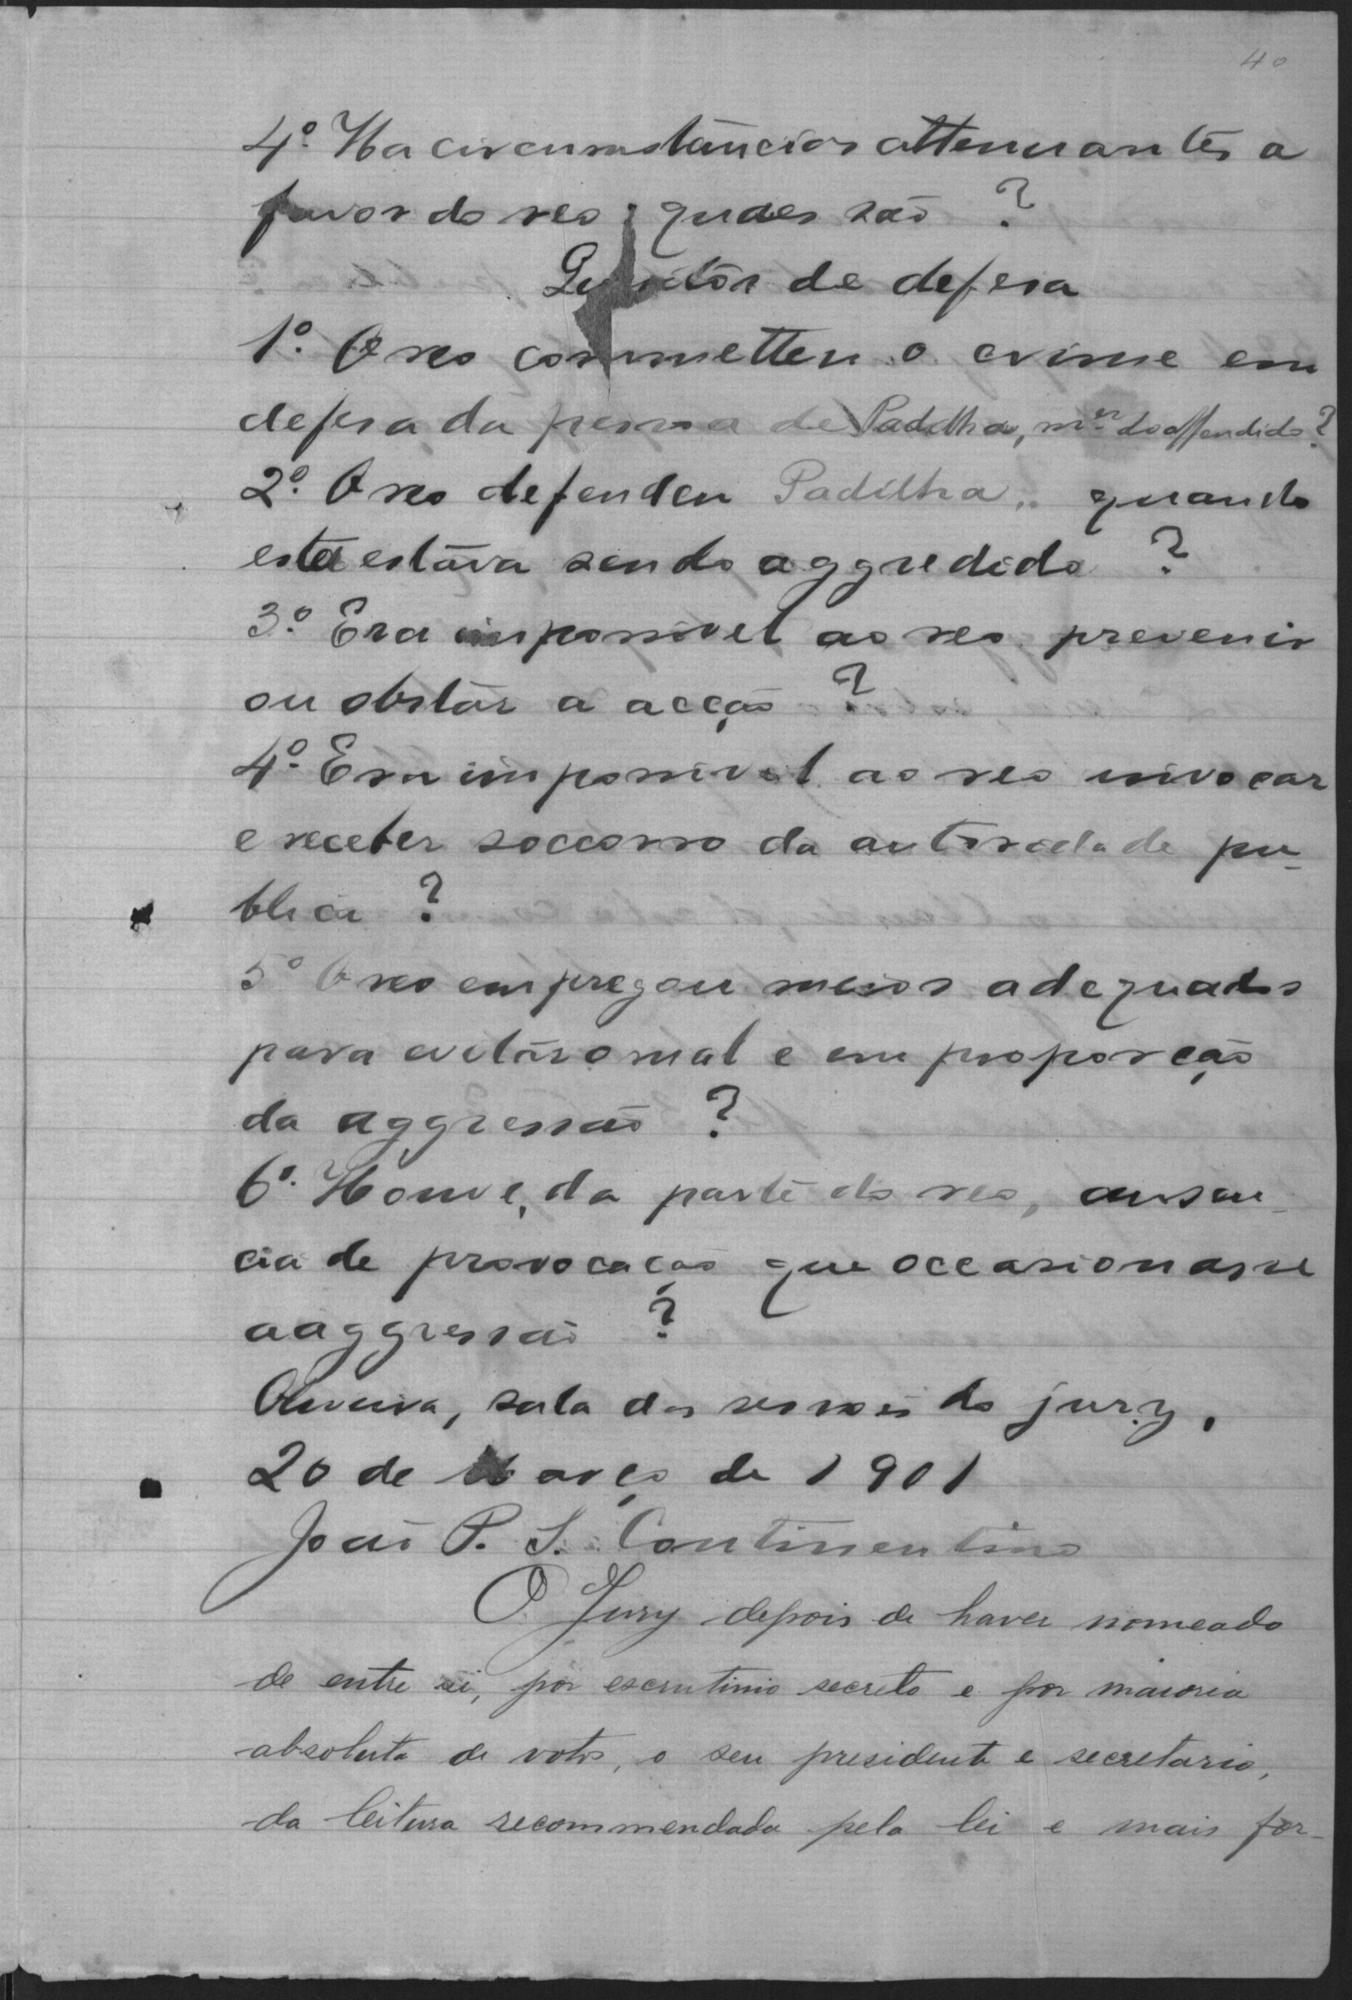 40
4.º Ha circumstancias attenuantes a
favor do reo; quaes são ?
Quesitos de defesa
1.º O reo commetteu o crime em
defesa da pessoa de Padilha, m.er do offendido ?
2.º O reo defendeu Padilha, quando
esta estava sendo aggredido ?
3.º Era impossivel ao reo prevenir
ou obstar a acção ?
4.º Era impossivel ao reo invocar
e receber soccorro da autoridade pu-
blica ?
5º O reo empregou meios adequados
para evitar o mal e em proporção
da aggressão ?
6.º Houve, da parte do reo, ausen-
cia de provocação que occasionasse
a aggressão ?
Oliveira, sala das sessões do jury,
20 de Março de 1901
João P. S. Continentino
O Jury depois de haver nomeado
de entre si, por escrutinio secreto e por maioria
absoluta de votos, o seu presidente e secretario,
da leitura recommendada pela lei e mais for-